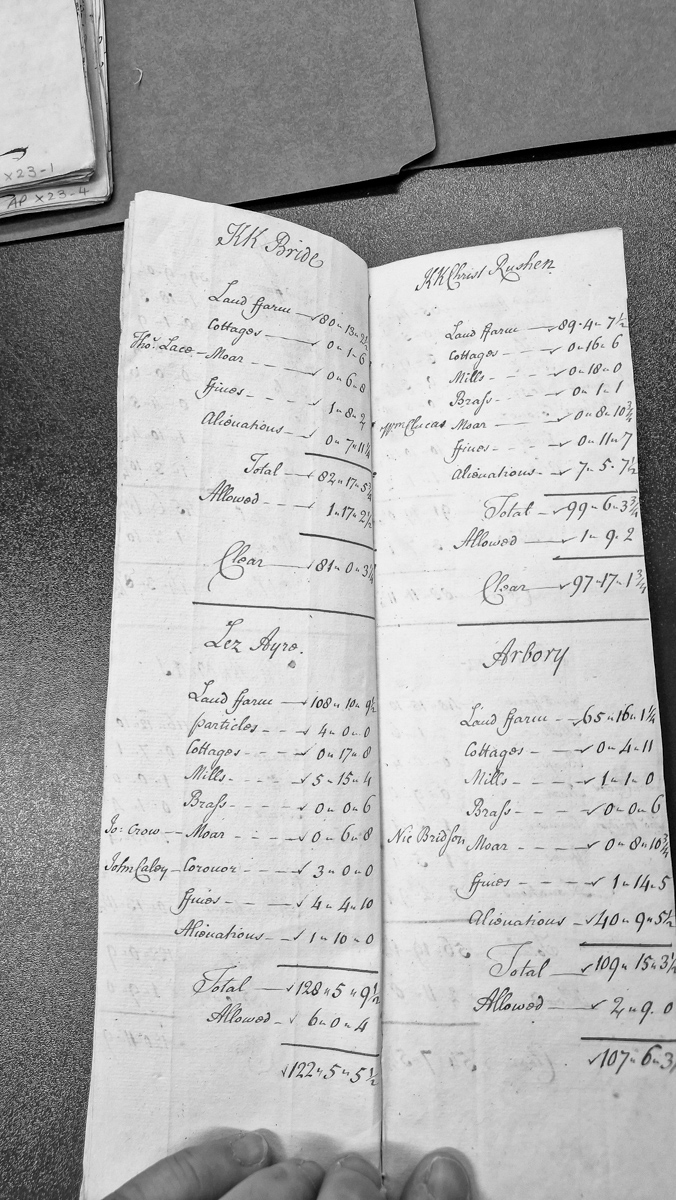 x23-1
AP x23-4
KK Bride
Land ffarm — 80 „ 13 „ 2½
Cottages — 0 „ 1 „ 6
Tho: Lace — Moar — 0 „ 6 „ 8
ffines — 1 „ 8 „ 2
Alienations — 0 „ 7 „ 11¼
Total — 82 „ 17 „ 5¾
Allowed — 1 „ 17 „ 2½
Clear — 81 „ 0 „ 3¼
Lez Ayre.
Land ffarm — 108 „ 10 „ 9½
particles — 4 „ 0 „ 0
Cottages — 0 „ 17 „ 8
Mills — 5 „ 15 „ 4
Braſs — 0 „ 0 „ 6
Jo: Crow — Moar — 0 „ 6 „ 8
John Caley — Coronor — 3 „ 0 „ 0
ffines — 4 „ 4 „ 10
Alienations — 1 „ 10 „ 0
Total — 128 „ 5 „ 9½
Allowed — 6 „ 0 „ 4
122 „ 5 „ 5½
KK Christ Rushen
Land ffarm — 89 „ 4 „ 7½
Cottages — 0 „ 16 „ 6
Mills — 0 „ 18 „ 0
Braſs — 0 „ 1 „ 1
Wm Clucas Moar — 0 „ 8 „ 10¾
ffines — 0 „ 11 „ 7
Alienations — 7 „ 5 „ 7½
Total — 99 „ 6 „ 3¾
Allowed — 1 „ 9 „ 2
Clear — 97 „ 17 „ 1¾
Arbory
Land ffarm — 65 „ 16 „ 1¼
Cottages — 0 „ 4 „ 11
Mills — 1 „ 1 „ 0
Braſs — 0 „ 0 „ 6
Nic Bridſon Moar — 0 „ 8 „ 10¾
ffines — 1 „ 14 „ 5
Alienations — 40 „ 9 „ 5½
Total — 109 „ 15 „ 3½
Allowed — 2 „ 9 „ 0
107 „ 6 „ 3